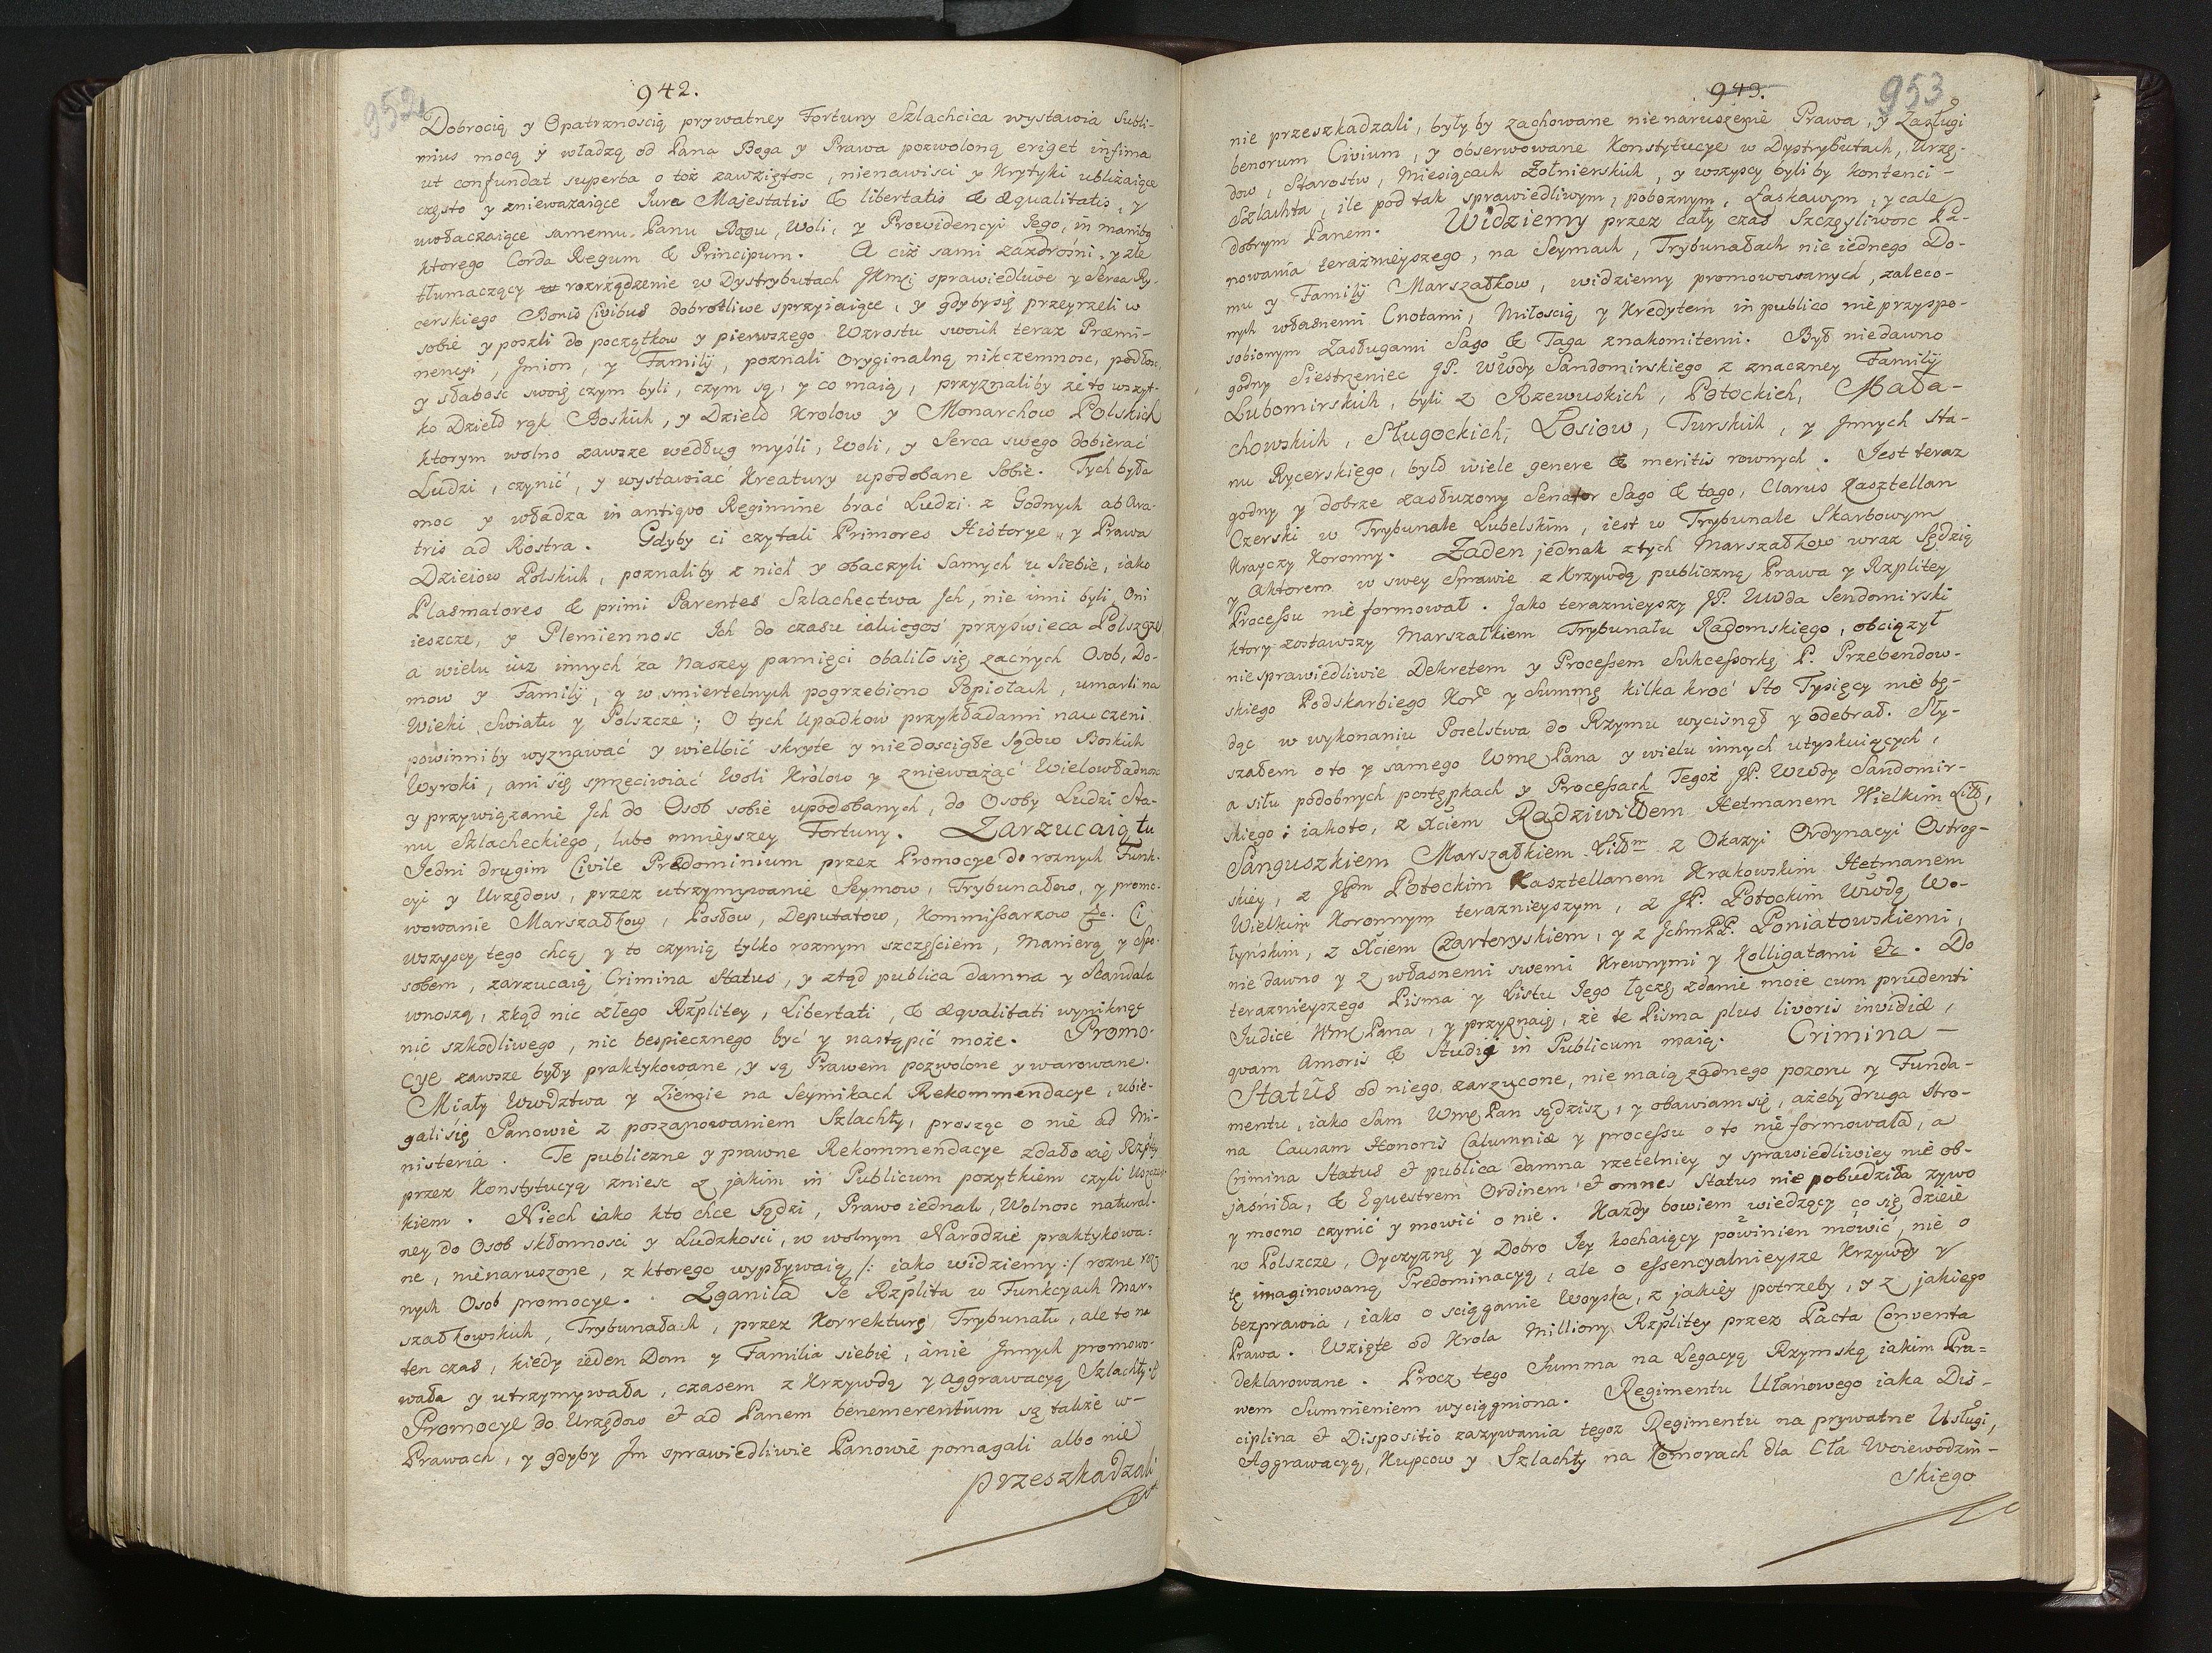 952
942.
Dobrocią y Opatrznoscią prywatney Fortuny Szlachcica wystawia Subli-
mius mocą y władzą od Pana Boga y Prawa pozwoloną eriget infima
ut confundat superba o toż zawziętosc, nienawisci y Krytyki ubliżaiące
często y zniewazaiące Jura Majestatis & libertatis & æqualitatis, y
uwłaczaiące samemu Panu Bogu, Woli, y Prowidencyi Jego, in manibq
ktorego Corda Regum & Principum. A ciż sami zazdrośni, y zle
tłumaczący rozrządzenie w Dystrybutach JKmci sprawiedliwe y Serca Ry-
cerskiego Bonis Civibus dobrotliwe sprzyiaiące, y gdyby się przeyrzeli w
sobie y poszli do początkow y pierwszego Wzrostu swoich teraz Præmi-
nencyi, Jmion, y Familij, poznali oryginalną nikczemnosc, podłosc,
y słabosc swoię czym byli, czym są, y co maią, przyznaliby że to wszyt-
ko Dzieło rąk Boskich, y Dzieło Krolow y Monarchow Polskich
ktorym wolno zawsze według myśli, Woli, y Serca swego dobierać
Ludzi, czynić, y wystawiać Kreatury upodobane Sobie. Tych była
moc y władza in antiquo Regimine brać Ludzi z Godnych ab Ara-
tris ad Rostra. Gdyby ci czytali Primores Historye, y Prawa
Dzieiow Polskich, poznaliby z nich y obaczyli Samych u Siebie, iako
Plasmatores & primi Parentes Szlachectwa Jch, nie inni byli Oni
ieszcze, y Plemiennosc Jch do czasu iakiegoś przyświeca Polszcze
a wielu iuż innych za Naszey pamięci obaliło się zacnych Osob, Do-
mow y Familij, y w smiertelnych pogrzebiono Popiołach, umarli na
Wieki Swiatu y Polszcze; O tych Upadkow przykładami nauczeni
powinniby wyznawać y wielbić skryte y niedoscigłe Sądow Boskich
Wyroki, ani się sprzeciwiać Woli Królow y znieważać Wielowładnosc
y przywiązanie Jch do Osob sobie upodobanych, do Osoby Ludzi Sta-
nu Szlacheckiego, lubo mnieyszey Fortuny. Zarzucaią tu
Jedni drugim Civile Prædominium przez Promocye do roznych Funk-
cyi y Urzędow, przez utrzymywanie Seymow, Trybunałow, y promo-
wowanie Marszałkow, Posłow, Deputatow, Kommissarzow &c. Ci
wszyscy tego chcą y to czynią tylko roznym szczęściem, Manierą y Spo-
sobem, zarzucaią Crimina Status, y ztąd publica damna y Scandala
wnoszą, zkąd nic złego Rzplitey, Libertati, & æqualitati wyniknąc
nic szkodliwego, nic bespiecznego być y nastąpić może. Promo-
cye zawsze były praktykowane, y są Prawem pozwolone y warowane.
Miały Wwdztwa y Ziemie na Seymikach Rekommendacye, ubie-
gali się Panowie z poszanowaniem Szlachty, prosząc o nie ad Mi-
nisteria. Te publiczne y prawne Rekommendacye zdało się Rzpltey
przez Konstytucyą zniesc z jakim in Publicum pożytkiem czyli Uszczer-
kiem. Niech iako kto chce sądzi, Prawo iednak, Wolnosc natural-
ney do Osob skłonnosci y Ludzkosci, w wolnym Narodzie praktykowa-
ne, nienaruszone, z ktorego wypływaią /: iako widziemy :/ rozne roz
nych Osob promocye. Zganiła Te Rzplita w Funkcyach Mar-
szałkowskich, Trybunałach, przez Korrekturę Trybunału, ale to na
ten czas, kiedy ieden Dom y Familia siebie, a nie Jnnych promowo-
wała y utrzymywała, czasem z Krzywdą y aggrawacyą Szlachty.
Promocye do Urzędow et ad Panem benemerentium są także w-
Prawach, y gdyby Jm sprawiedliwie Panowie pomagali albo nie
przeszkadzali
943.
953
nie przeszkadzali, były by zachowane nienaruszenie Prawa, y Zasługi
benorum Civium, y obserwowane Konstytucye w Dystrybutach, Urzę-
dow, Starostw, Miesiącach Zołnierskich, y wszyscy byliby kontenci -
Szlachta, ile pod tak sprawiedliwym, pobożnym, Łaskawym, y cale
dobrym Panem. Widziemy przez cały czas Szczęśliwosc Pa-
nowania teraznieyszego, na Seymach, Trybunałach nie iednego Do-
mu y Familij Marszałkow, widziemy promowowanych, zaleco-
nych własnemi Cnotami, Miłoscią y Kredytem in publico nie przyspo-
sobionym Zasługami Sago & Taga znakomitemi. Był niedawno
godny Siestrzeniec JP. Wwdy Sandomirskiego z znaczney Familij
Lubomirskich, byli z Rzewuskich, Potockich, Mała-
chowskich, Sługockich, Łosiow, Turskich, y Jnnych Sta-
nu Rycerskiego, było wiele genere & meritis rownych. Jest teraz
godny y dobrze zasłużony Senator Sago & tago, Clarus Kasztellan
Czerski w Trybunale Lubelskim, iest w Trybunale Skarbowym
Krayczy Koronny. Zaden jednak z tych Marszałkow wraz Sędzią
y Aktorem w swey Sprawie z Krzywdą publiczną Prawa y Rzplitey
Processu nie formował. Jako teraznieyszy JP. Wwda Sendomirski
ktory zostawszy Marszałkiem Trybunału Radomskiego, obciążył
niesprawiedliwie Dekretem y Processem Sukcessorkę P. Przebendow-
skiego Podskarbiego Kor° y Summę kilka kroć Sto Tysięcy nie bę-
dąc w wykonaniu Poselstwa do Rzymu wycisnął y odebrał. Sły-
szałem o to y samego Wme Pana y wielu innych utyskuiących,
a siłu podobnych postępkach y Processach Tegoż JP. Wwdy Sandomir-
skiego: iakoto, z Xciem Radziwiłłem Hetmanem Wielkim Litt,
Sanguszkiem Marszałkiem Litt^m z Okazyi Ordynacyi Ostrog-
skiey, z JP^m Potockim Kasztellanem Krakowskim Hetmanem
Wielkim Koronnym teraznieyszym, z JP. Potockim Wwdą Wo-
łyńskim, z Xciem Czartoryskiem, y z JchmPP. Poniatowskiemi,
nie dawno y z własnemi swemi Krewnymi y Kolligatami &c. Do
teraznieyszego Pisma y Listu Jego łączę zdanie moie cum prudenti
Judice Wme Pana, y przyznaię, że te Pisma plus livoris invidiæ,
quam Amoris & Studij in Publicum maią. Crimina —
Statûs od niego zarzucone, nie maią żadnego pozoru y Funda-
mentu, iako Sam Wme Pan sądzisz, y obawiam się, ażeby druga Stro-
na Causam Honoris Calumniæ y processu o to nie formowała, a
Crimina Status et publica damna rzetelniey y sprawiedliwiey nie ob-
jaśniła, & Equestrem Ordinem et omnes Status nie pobudziła żywo
y mocno czynić y mowić o nie. Kazdy bowiem wiedzący co się dzieie
w Polszcze, Oyczyznę y Dobro Jey kochaiący powinien mówić, nie o
tę imaginowaną Predominacyą, ale o essencyalnieysze Krzywdy y
bezprawia, iako o sciąganie Woyska, z jakiey potrzeby, y z jakiego
Prawa. Wzięte od Krola Milliony Rzplitey przez Pacta Conventa
deklarowane. Procz tego Summa na Legacyą Rzymską iakim Pra-
wem Sumnieniem wyciągniona. Regimentu Ułanowego iaka Dis-
ciplina et Dispositio zazywania tegoz Regimentu na prywatne Usługi,
Aggrawacyą, Kupcow y Szlachty na Komorach dla Cła Woiewodzin-
skiego